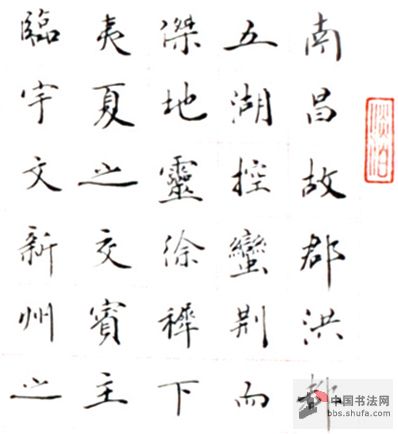 南昌故郡洪都
五湖控蠻荆而
傑地靈徐穉下
夷夏之交賓主
臨宇文新州之
淡泊
中国书法网
bbs.shufa.com